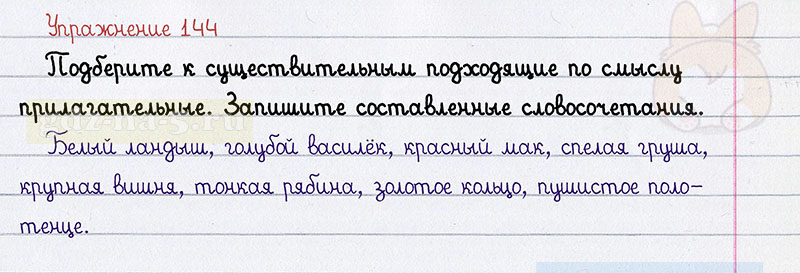 Упражнение 144
Подберите к существительным подходящие по смыслу
прилагательные. Запишите составленные словосочетания.
Белый ландыш, голубой василёк, красный мак, спелая груша,
крупная вишня, тонкая рябина, золотое кольцо, пушистое поло-
тенце.